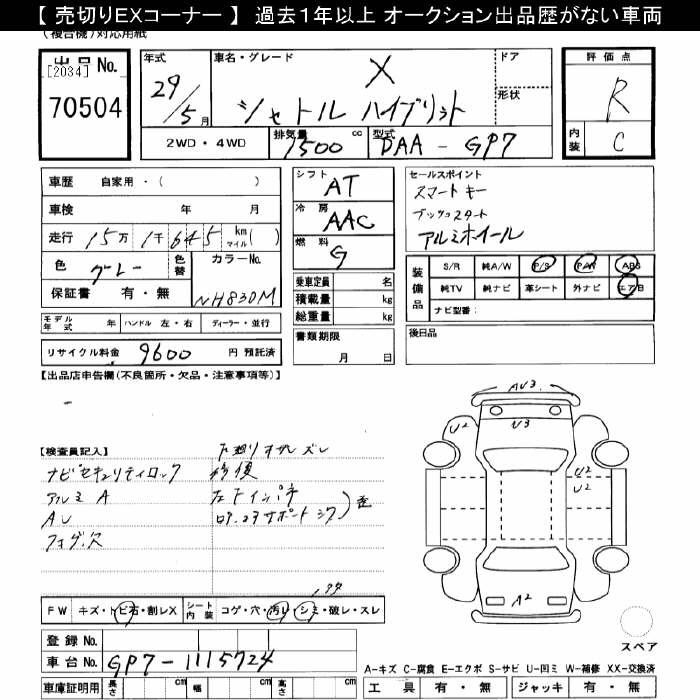 【 売切りEXコーナー 】 過去１年以上 オークション出品歴がない車両
(複合機)対応用紙
出品 No. [2034]
70504
年式 29/5月
車名・グレード X
シャトル ハイブリット
ドア
形状
評価点 R
内装 C
2WD・4WD
排気量 1500 cc
型式 DAA-GP7
車歴 自家用・( )
車検 年 月
走行 15万 1千 645 km マイル ( )
色 グレー 色替
カラーNo. NH830M
保証書 有・無
モデル年式 年 ハンドル 左・右 ディーラー・並行
リサイクル料金 9600 円 預託済
シフト AT
冷房 AAC
燃料 G
乗車定員 名
積載量 kg
総重量 kg
書類期限
月 日
セールスポイント
スマートキー
プッシュスタート
アルミホイール
装備品
S/R 純A/W P/S P/W ABS
純TV 純ナビ 革シート 外ナビ エア/B
ナビ型番:
後日品
【出品店申告欄(不良箇所・欠品・注意事項等)】
【検査員記入】
ナビセキュリティロック
アルミ A
AU
フォグ欠
修復
左下インパネ
サポート
歪
FW キズ・トビ石・割レX
シート内装 コゲ・穴・汚レ・シミ・破レ・スレ
登録 No.
車台 No. GP7-1115724
車庫証明用 長さ cm 幅 cm 高さ cm
AU3
U3
U2
U2
U2
A2
スペア
A-キズ C-腐食 E-エクボ S-サビ U-凹ミ W-補修 XX-交換済
工具 有・無 ジャッキ 有・無